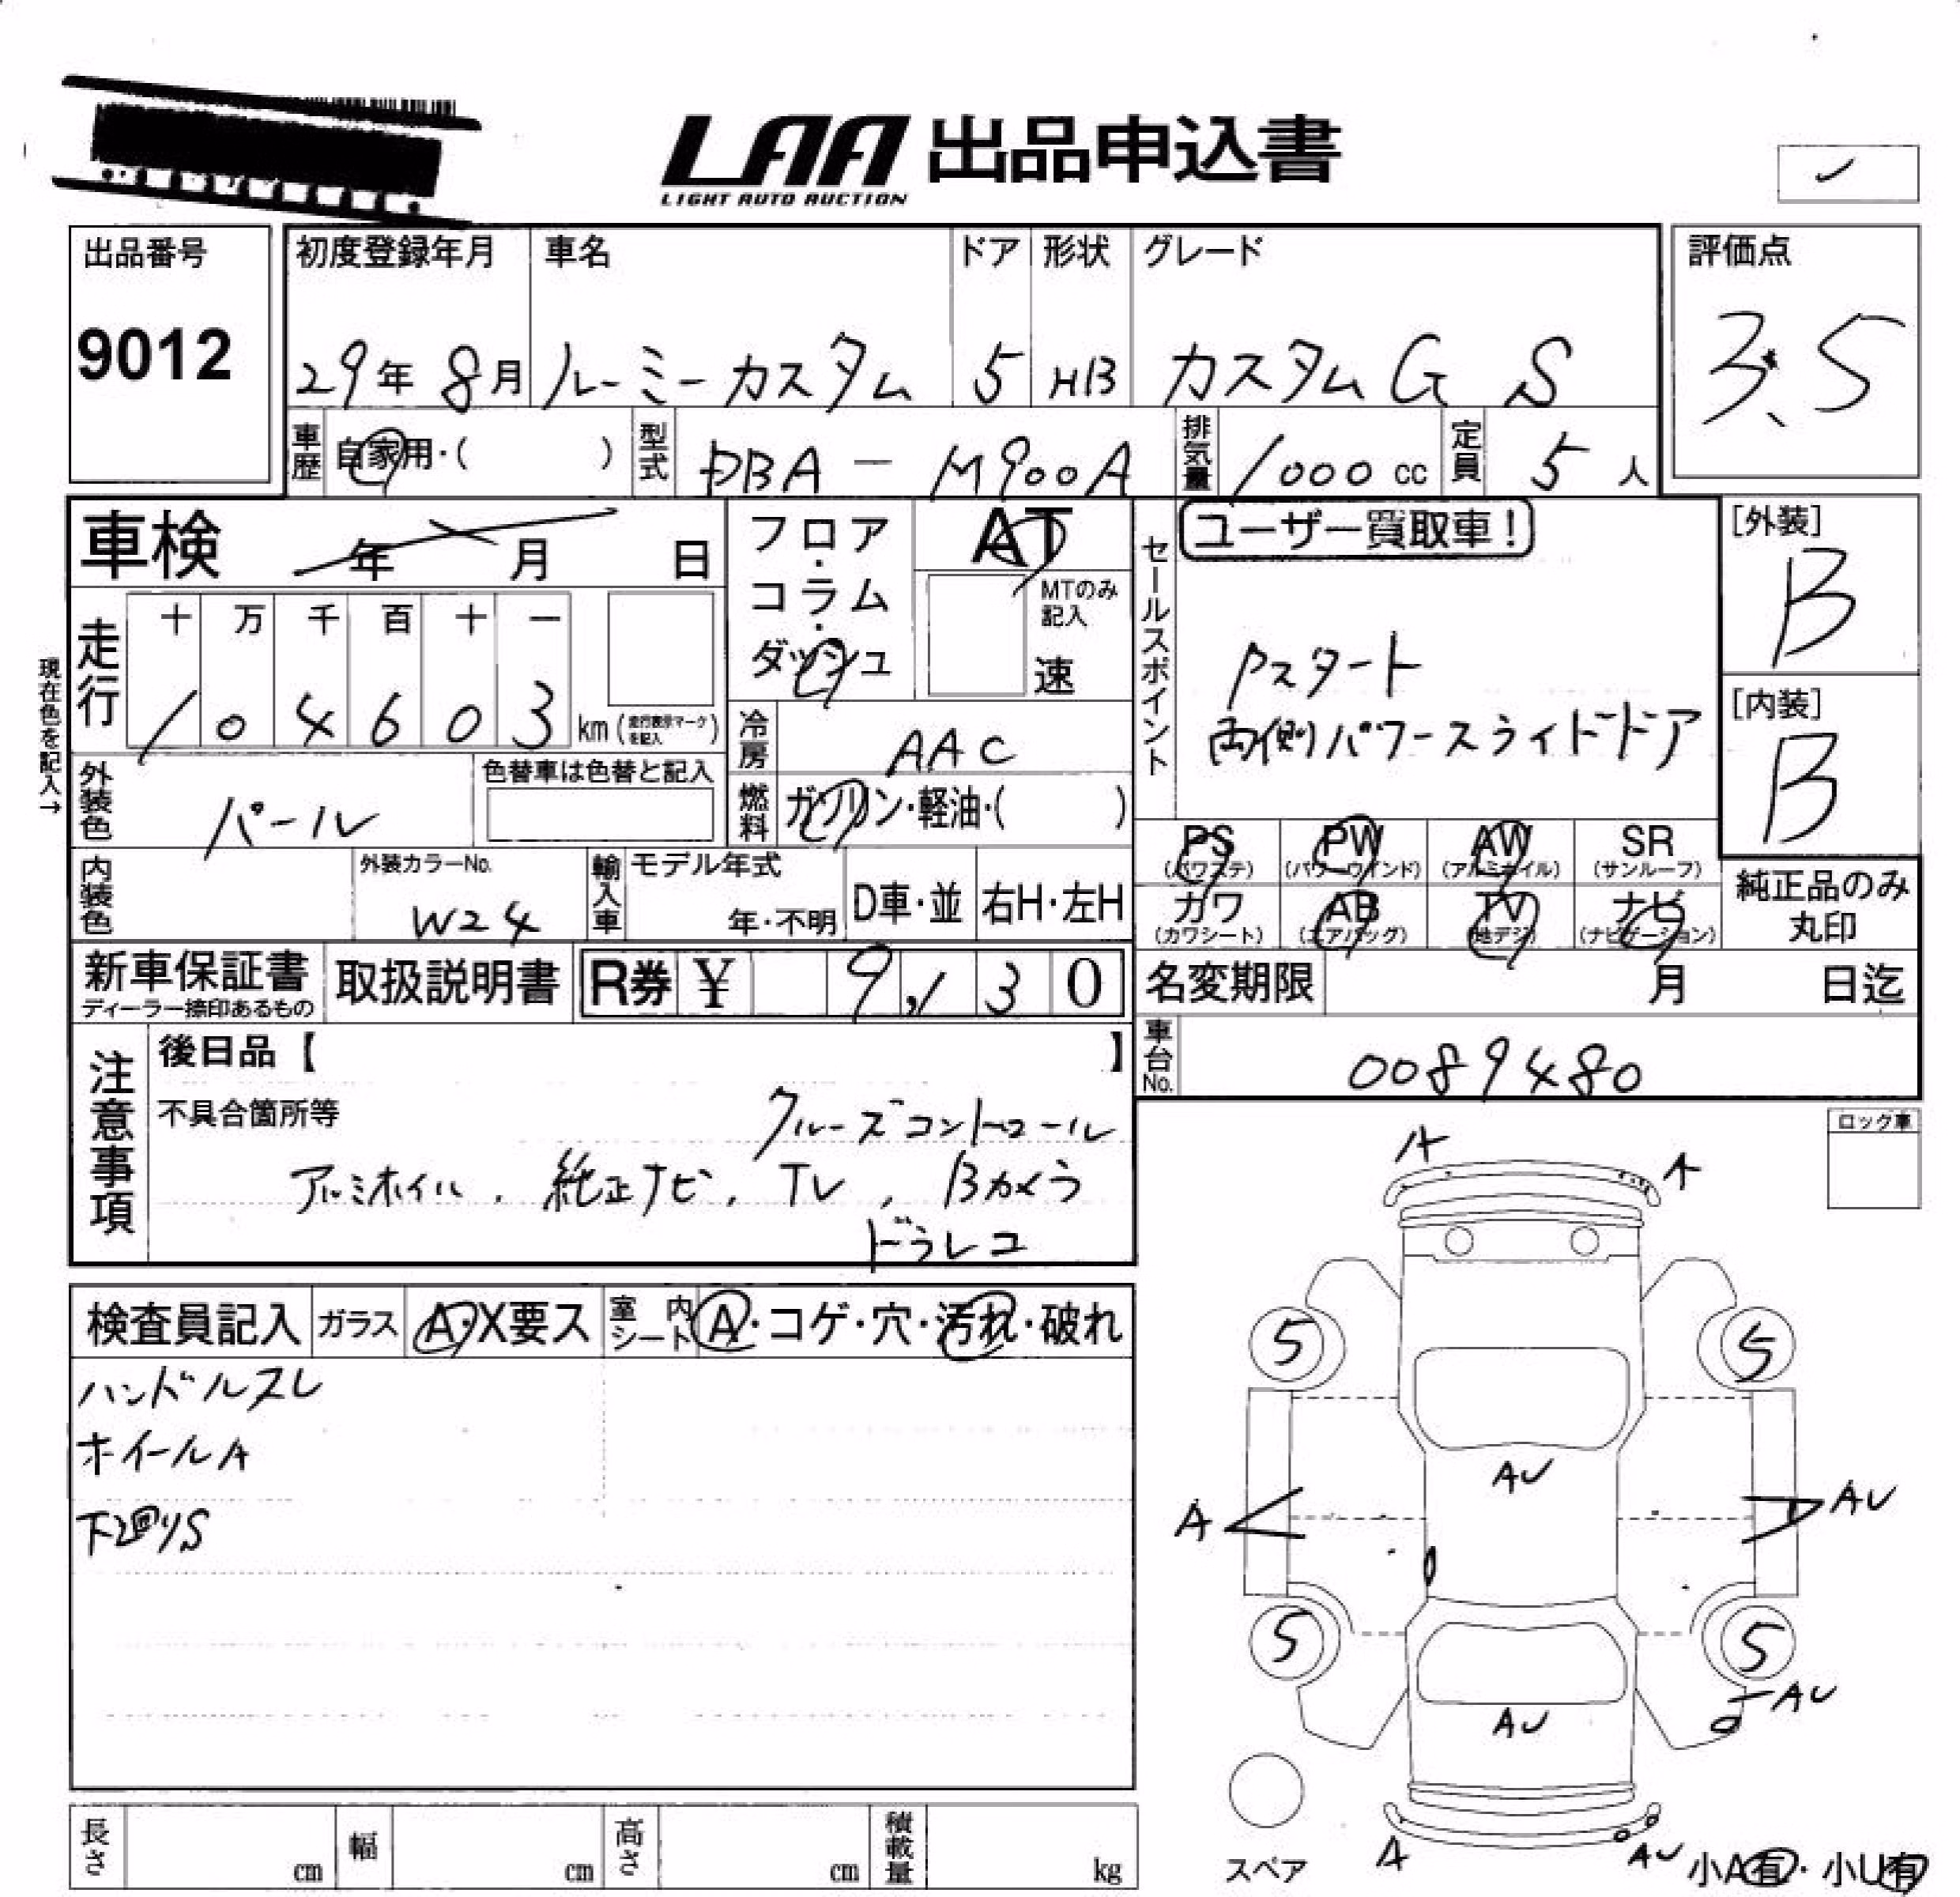 LAA 出品申込書
LIGHT AUTO AUCTION
出品番号
9012
初度登録年月 車名 ドア 形状 グレード
29年 8月 ルーミーカスタム 5 HB カスタムG S
評価点
3.5
車歴 自家用・( ) 型式 DBA-M900A 排気量 1000 cc 定員 5 人
車検 年 月 日
フロア・コラム・ダッシュ
AT
MTのみ記入
速
セールスポイント
ユーザー買取車!
Pスタート
両側パワースライドドア
[外装]
B
[内装]
B
現在色を記入→
走行 十 万 千 百 十 一
1 0 4 6 0 3 km (走行表示マークを記入)
冷房 AAC
燃料 ガソリン・軽油・( )
外装色 パール 色替車は色替と記入
内装色 外装カラーNo. W24
輸入車 モデル年式 年・不明 D車・並 右H・左H
PS (パワステ) PW (パワーウインド) AW (アルミホイル) SR (サンルーフ)
カワ (カワシート) AB (エアバッグ) TV (地デジ) ナビ (ナビゲーション)
純正品のみ
丸印
新車保証書 取扱説明書 R券 ¥ 9,130
ディーラー捺印あるもの
名変期限 月 日迄
車台No. 0089480
注意事項
後日品【 】
不具合箇所等 クルーズコントロール
アルミホイル、純正ナビ、TV、Bカメラ
ドラレコ
検査員記入 ガラス A・X要ス 室内シート A・コゲ・穴・汚れ・破れ
ハンドルスレ
ホイールA
下廻りS
ロック車
A A
5 5
AU
A AU
5 5
AU
AU
A AU
スペア
小A有・小U有
長さ cm 幅 cm 高さ cm 積載量 kg